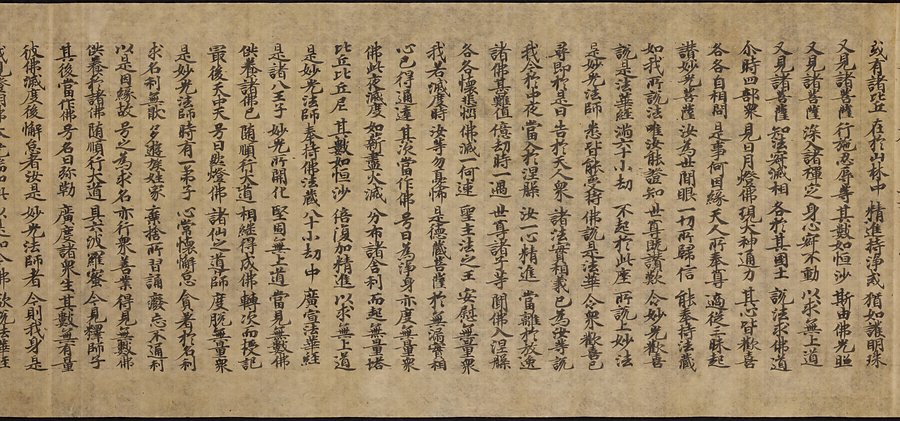 或有諸比丘 在於山林中 精進持淨戒 猶如護明珠
又見諸菩薩 行施忍辱等 其數如恒沙 斯由佛光照
又見諸菩薩 深入諸禅定 身心寂不動 以求無上道
又見諸菩薩 知法寂滅相 各於其國土 說法求佛道
尒時四部衆 見日月燈佛 現大神通力 其心皆歡喜
各各自相問 是事何因緣 天人所奉尊 適從三昧起
讃妙光菩薩 汝為世間眼 一切所歸信 能奉持法藏
如我所說法 唯汝能證知 世尊既讃歎 令妙光歡喜
說是法華經 滿六十小劫 不起於此座 所說上妙法
是妙光法師 悉皆能受持 佛說是法華 令衆歡喜已
尋即於是日 告於天人衆 諸法實相義 已為汝等說
我今於中夜 當入於涅槃 汝一心精進 當離於放逸
諸佛甚難值 億劫時一遇 世尊諸子等 聞佛入涅槃
各各懷悲惱 佛滅一何速 聖主法之王 安慰無量衆
我若滅度時 汝等勿憂怖 是德藏菩薩 於無漏實相
心已得通達 其次當作佛 号曰為淨身 亦度無量衆
佛此夜滅度 如薪盡火滅 分布諸舍利 而起無量塔
比丘比丘尼 其數如恒沙 倍復加精進 以求無上道
是妙光法師 奉持佛法藏 八十小劫中 廣宣法華經
是諸八王子 妙光所開化 堅固無上道 當見無數佛
供養諸佛已 随順行大道 相繼得成佛 轉次而授記
最後天中天 号曰燃燈佛 諸仙之導師 度脫無量衆
是妙光法師 時有一弟子 心常懷懈怠 貪著於名利
求名利無猒 多遊族姓家 棄捨所習誦 癈忘不通利
以是因緣故 号之為求名 亦行衆善業 得見無數佛
供養於諸佛 随順行大道 具六波羅蜜 今見釋師子
其後當作佛 号名曰弥勒 廣度諸衆生 其數無有量
彼佛滅度後 懈怠者汝是 妙光法師者 今則我身是